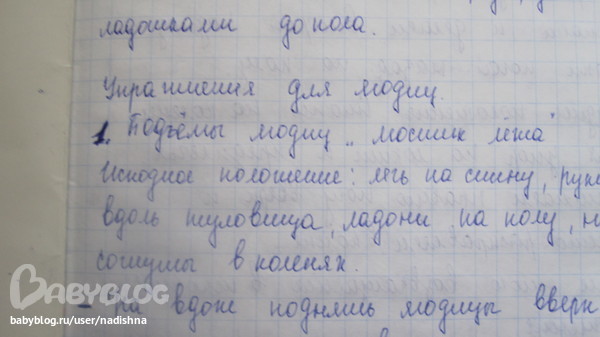 ладошками до пола.
Упражнения для ягодиц.
1. Подъёмы ягодиц „мостик лёжа"
Исходное положение: лечь на спину, рук
вдоль туловища, ладони на полу, н
согнуты в коленях.
- На вдохе поднять ягодицы вверх
BABYBLOG
babyblog.ru/user/nadishna